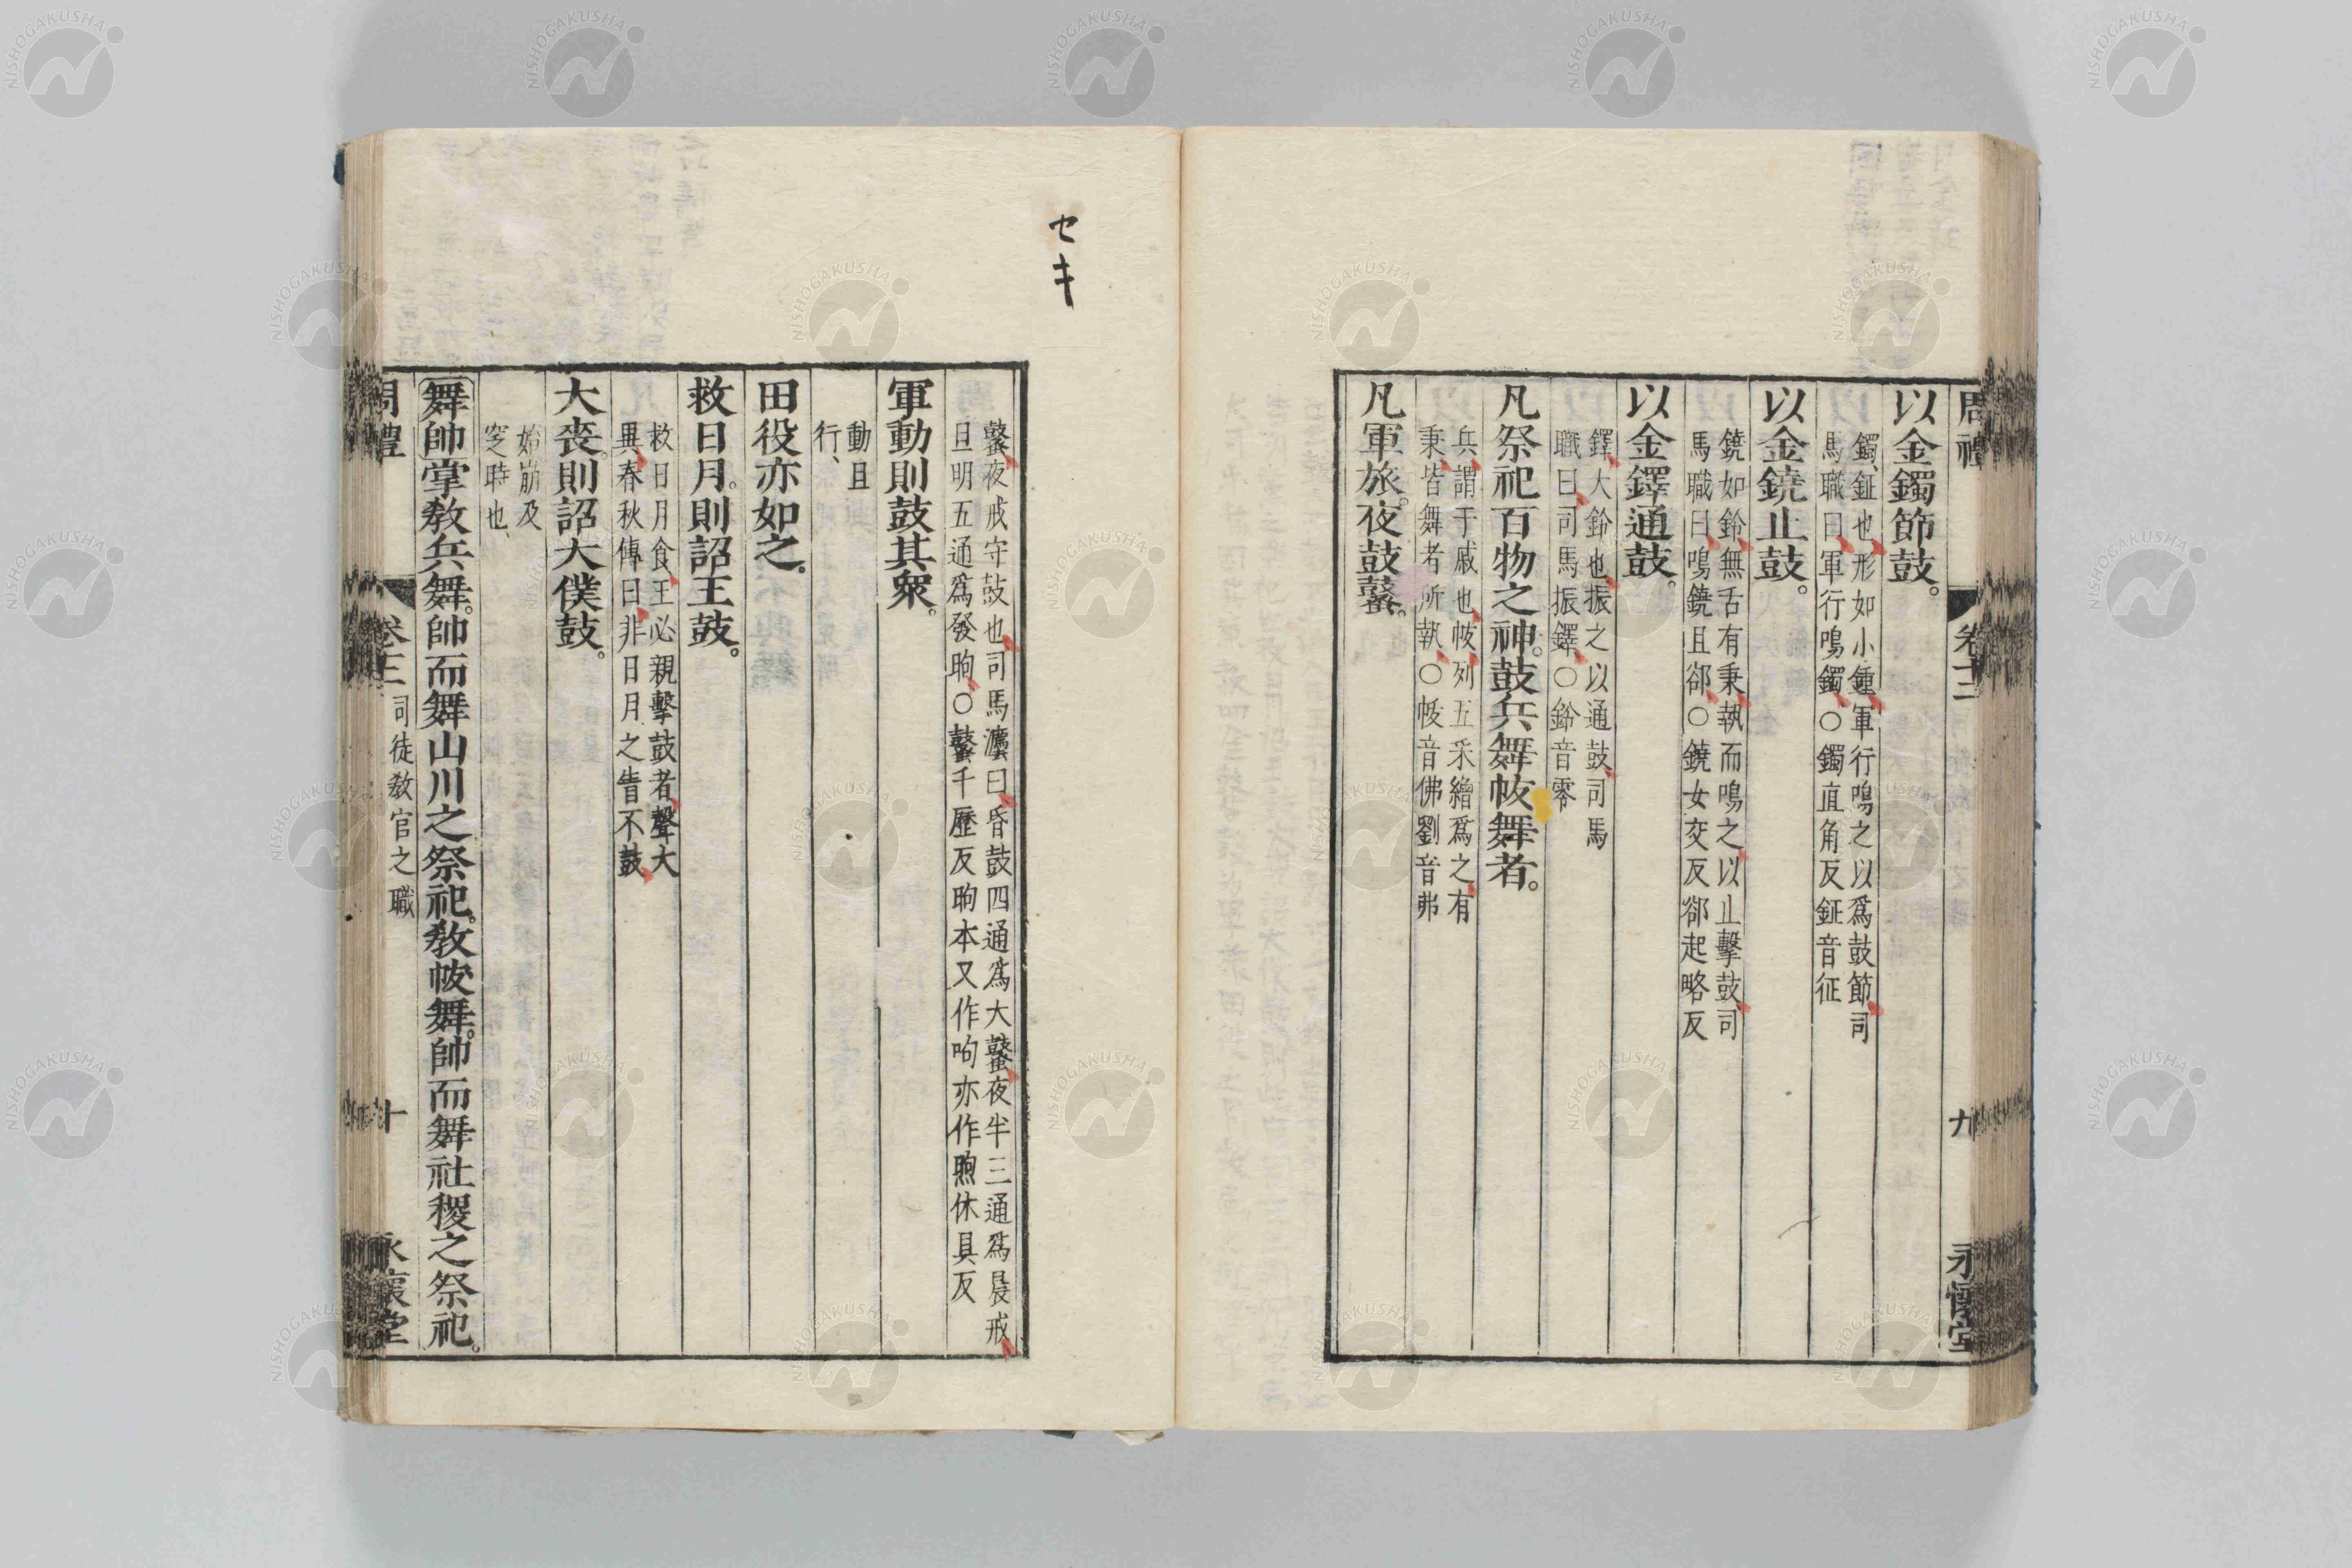 周禮
卷十二
九
永懷堂
以金鐲節鼓。
鐲、鉦也、形如小鍾、軍行鳴之以爲鼓節、司
馬職曰、軍行鳴鐲、○鐲直角反鉦音征
以金鐃止鼓。
鐃如鈴、無舌有秉、執而鳴之、以止擊鼓、司
馬職曰、鳴鐃且郤、○鐃女交反郤起略反
以金鐸通鼓。
鐸、大鈴也、振之以通鼓、司馬
職曰、司馬振鐸、○鈴音零
凡祭祀百物之神。鼓兵舞帗舞者。
兵、謂干戚也、帗、列五采繒爲之、有
秉、皆舞者所執、○帗音佛劉音弗
凡軍旅。夜鼓鼜。
セキ
鼜、夜戒守鼓也、司馬灋曰、昏鼓四通爲大鼜、夜半三通爲晨戒、
旦明五通爲發昫、○鼜千歷反昫本又作呴亦作煦休具反
軍動則鼓其衆。
動且
行、
田役亦如之。
救日月。則詔王鼓。
救日月食、王必親擊鼓者、聲大
異、春秋傳曰、非日月之眚不鼓、
大喪。則詔大僕鼓。
始崩及
窆時也、
舞帥掌教兵舞。帥而舞山川之祭祀。教帗舞。帥而舞社稷之祭祀。
周禮
司徒教官之職
十
永懷堂